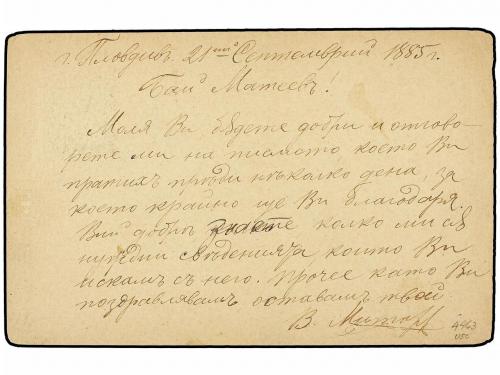 г. Пловдивъ. 21ий Септемврий 1885 г.
Бай Матеевъ!
Моля Ви бѫдете добри и отгово-
рете ми на писмото което Ви
пратихъ прѣди нѣколко дена, за
което крайно ще Ви благодаря.
Вий добрѣ знаете колко ми сѫ
нужни свѣденията които Ви
искамъ съ него. Прочее като Ви
поздравлявамъ оставамъ твой
В.
4463
USC